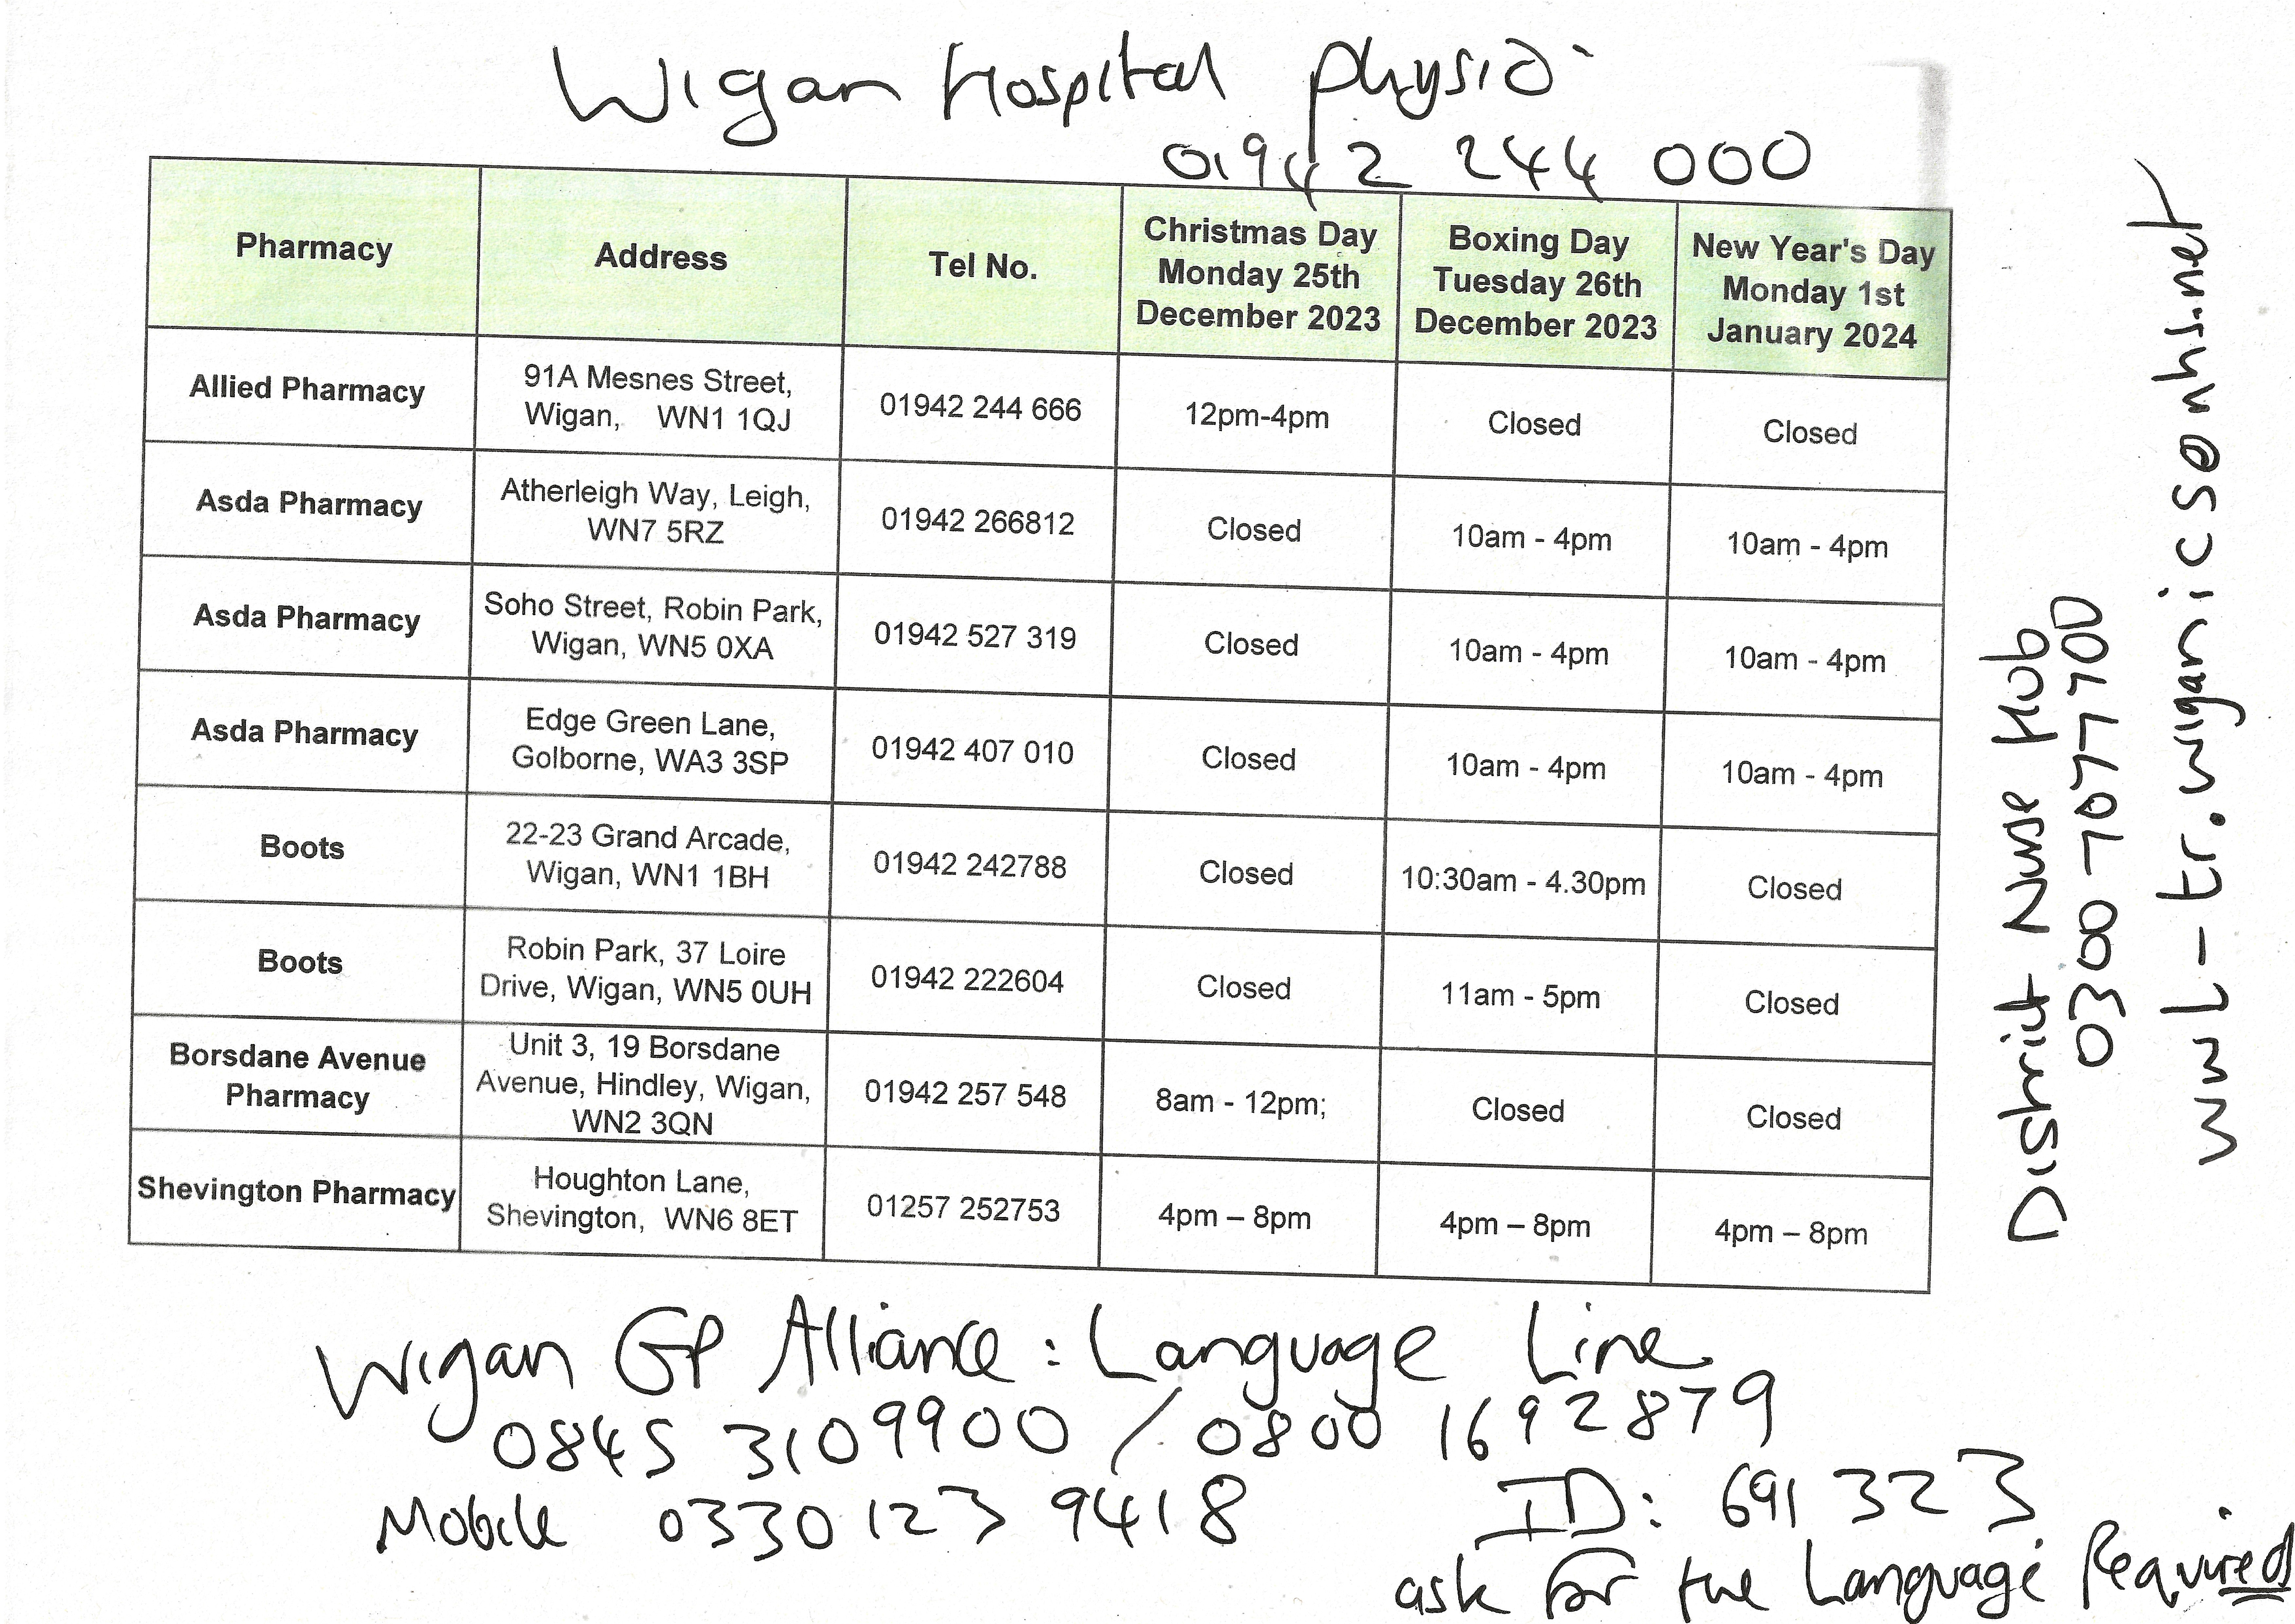 Wigan Hospital Physio
01942 244 000
Pharmacy
Address
Tel No.
Christmas Day
Monday 25th
December 2023
Boxing Day
Tuesday 26th
December 2023
New Year's Day
Monday 1st
January 2024
Allied Pharmacy
91A Mesnes Street,
Wigan, WN1 1QJ
01942 244 666
12pm-4pm
Closed
Closed
Asda Pharmacy
Atherleigh Way, Leigh,
WN7 5RZ
01942 266812
Closed
10am - 4pm
10am - 4pm
Asda Pharmacy
Soho Street, Robin Park,
Wigan, WN5 0XA
01942 527 319
Closed
10am - 4pm
10am - 4pm
Asda Pharmacy
Edge Green Lane,
Golborne, WA3 3SP
01942 407 010
Closed
10am - 4pm
10am - 4pm
Boots
22-23 Grand Arcade,
Wigan, WN1 1BH
01942 242788
Closed
10:30am - 4.30pm
Closed
Boots
Robin Park, 37 Loire
Drive, Wigan, WN5 0UH
01942 222604
Closed
11am - 5pm
Closed
Borsdane Avenue
Pharmacy
Unit 3, 19 Borsdane
Avenue, Hindley, Wigan,
WN2 3QN
01942 257 548
8am - 12pm;
Closed
Closed
Shevington Pharmacy
Houghton Lane,
Shevington, WN6 8ET
01257 252753
4pm – 8pm
4pm – 8pm
4pm – 8pm
District Nurse Hub
0300 7077700
wwl-tr.wiganics@nhs.net
Wigan GP Alliance : Language Line
0845 3109900 / 0800 1692879
Mobile 0330 123 9418
ID: 691 323
ask for the Language Required